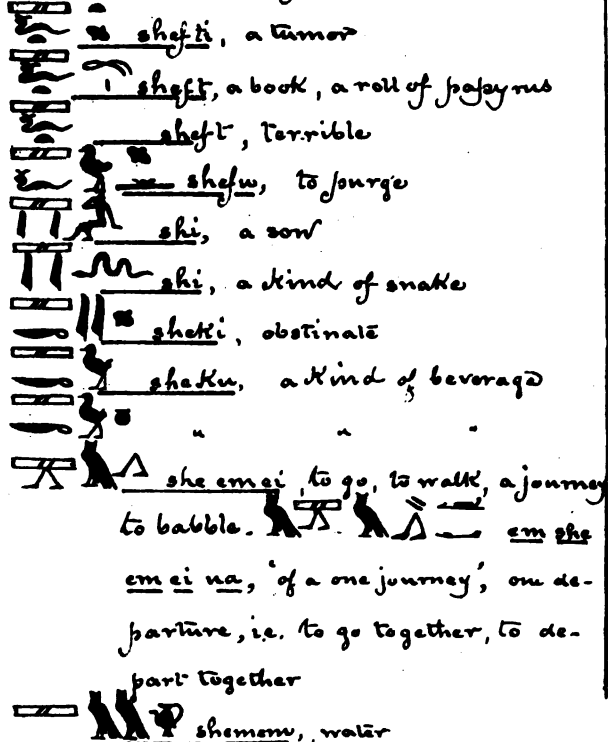 shefti, a tumor
sheft, a book, a roll of papyrus
sheft, terrible
shefu, to purge
shi, a son
shi, a kind of snake
sheki, obstinate
sheku, a kind of beverage
" " "
she em ei, to go, to walk, a journey
to babble. em she
em ei ua, 'of a one journey', on de-
parture, i.e. to go together, to de-
part together
shemem, water